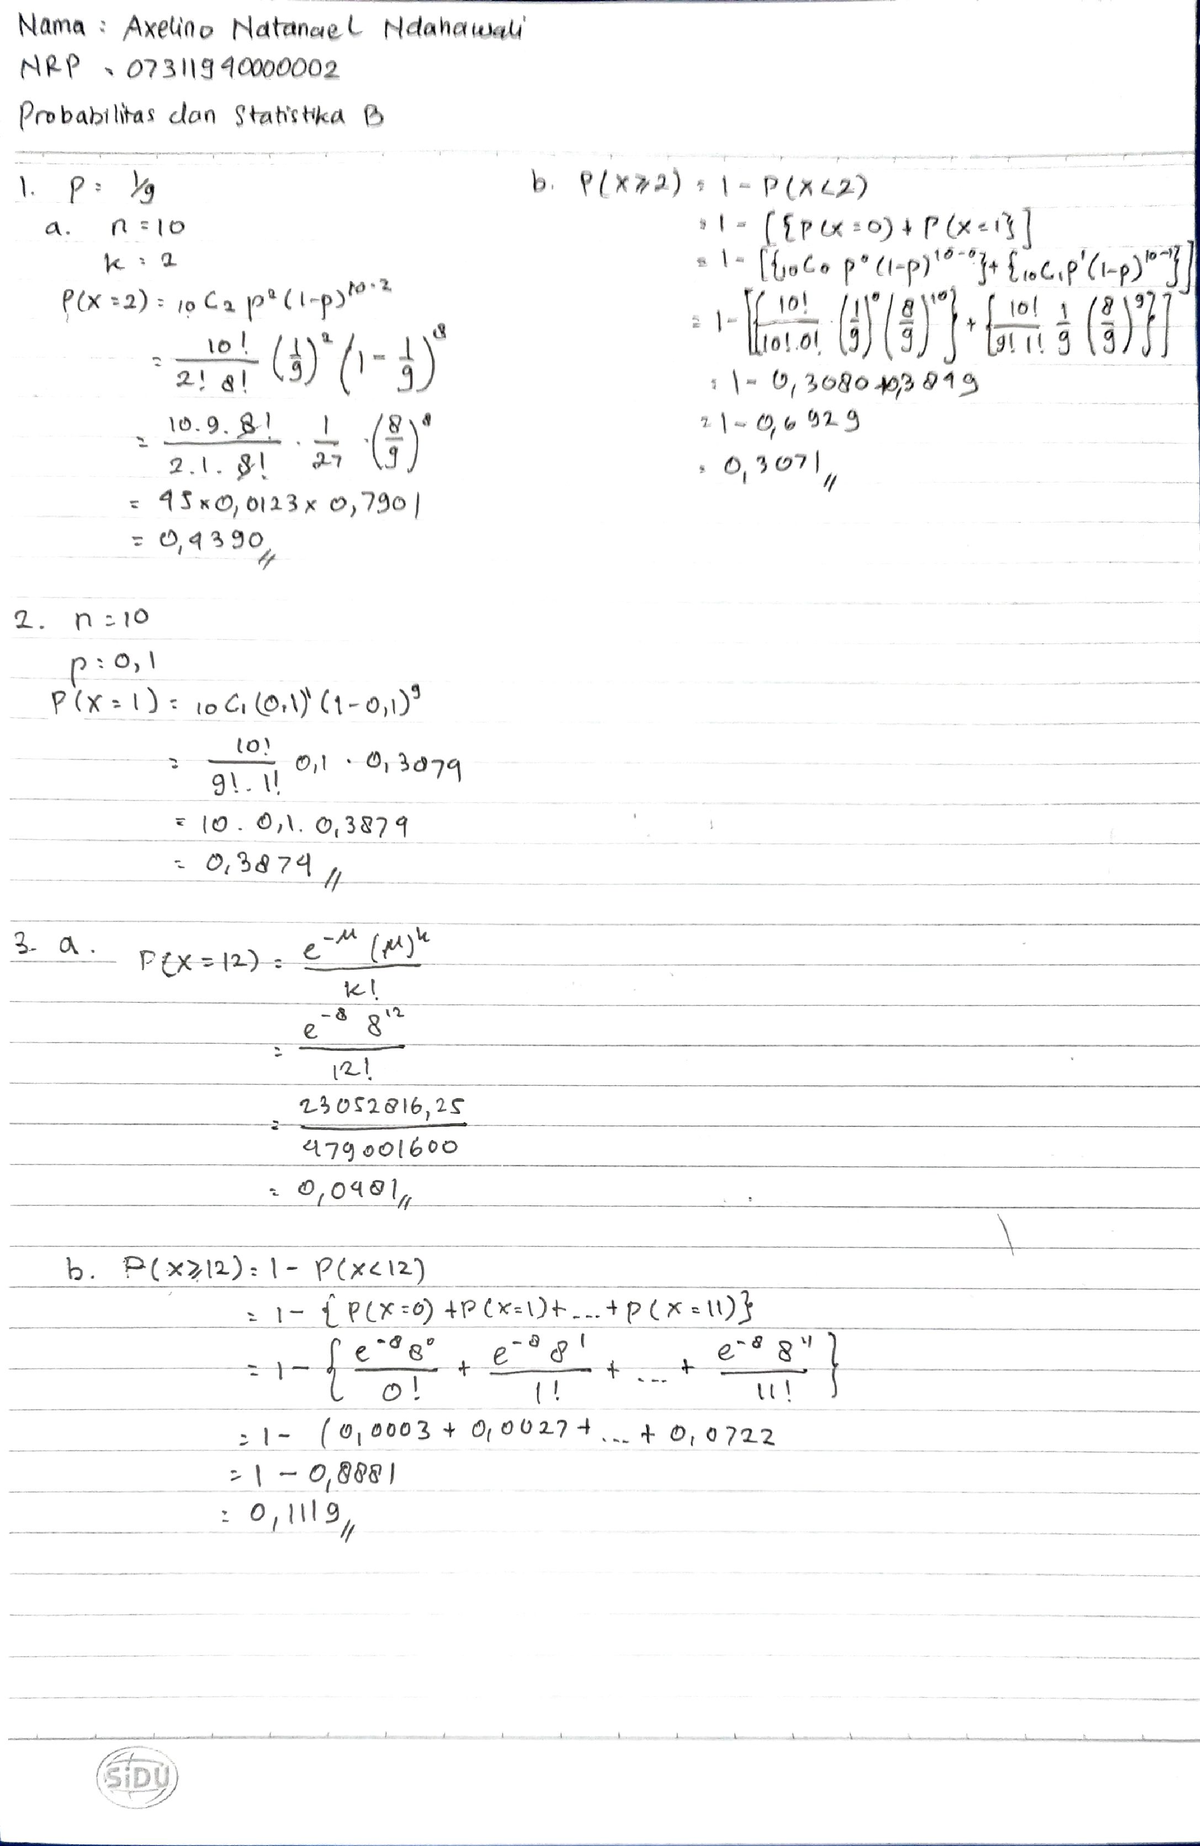 Nama : Axelino Natanael Ndahawali
NRP : 07311940000002
Probabilitas dan Statistika B
1. p = 1/9
a. n = 10
k = 2
P(X=2) = 10 C2 p² (1-p)^10-2
= 10! / 2! 8! (1/9)² (1 - 1/9)^8
= 10.9.8! / 2.1.8! . 1/27 . (8/9)^8
= 45 x 0,0123 x 0,7901
= 0,4390 //
b. P(X⩾2) = 1 - P(X<2)
= 1 - [{P(X=0) + P(X=1}]
= 1 - [{10C0 p⁰ (1-p)^10-0} + {10C1 p¹ (1-p)^10-1}]
= 1 - [{10! / 10!.0! . (1/9)⁰ (8/9)^10} + {10! / 9! 1! 1/9 (8/9)^9}]
= 1 - 0,3080 + 0,3849
= 1 - 0,6929
= 0,3071 //
2. n = 10
p = 0,1
P(X=1) = 10 C1 (0,1)¹ (1-0,1)^9
= 10! / 9!.1! 0,1 . 0,3879
= 10 . 0,1 . 0,3879
= 0,3874 //
3. a. P(X=12) = e^-μ (μ)^k / k!
= e^-8 8^12 / 12!
= 23052816,25 / 479001600
= 0,0481 //
b. P(X⩾12) = 1 - P(X<12)
= 1 - {P(X=0) + P(X=1) + ... + P(X=11)}
= 1 - {e^-8 8⁰ / 0! + e^-8 8¹ / 1! + ... + e^-8 8^11 / 11!}
= 1 - (0,0003 + 0,0027 + ... + 0,0722
= 1 - 0,8881
= 0,1119 //
SiDU